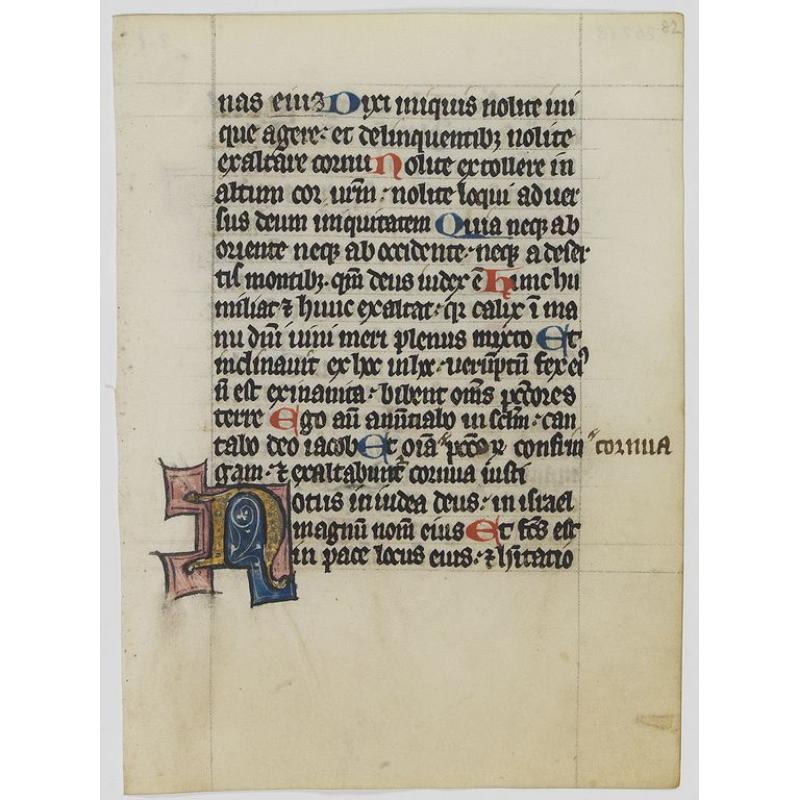 82
nas eiuꝫ Dixi iniquis nolite ini
que agere: et delinquentibꝫ nolite
exaltare cornu Nolite extollere in
altum cor ur̄m: nolite loqui aduer
sus deum iniquitatem Quia neqꝫ ab
oriente neqꝫ ab occidente: neqꝫ a deser
tis montibꝫ. qm̄ deus iudex ē Hunc hu
miliat ⁊ hunc exaltat: qr calix ī ma
nu dn̄i uini meri plenus mixto Et
inclinauit ex hoc in hoc: uerūptn̄ fex eiꝰ
n̄ est exinanita: bibent om̄s pctōres
terre Ego aū annūtiabo in sclm̄: can
tabo deo iacob Et oīa pccōꝝ confrin cornua
gam: ⁊ exaltabunt᷑ cornua iusti
Notus in iudea deus: in israel
magnū nom̄ eius Et fcs̄ est
in pace locus eius: ⁊ hītatio